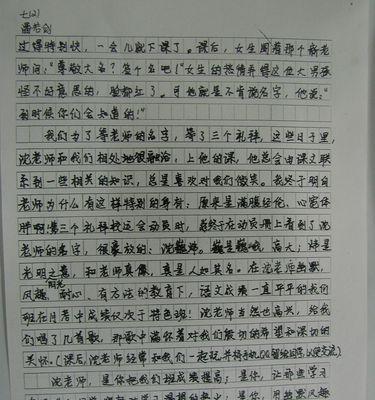 七(2)
潘若剑
过得特别快，一会儿就下课了。课后，女生围着那个新老
师问：“尊敬大名？签个名吧！”女生的热情弄得这位大男孩
怪不好意思的，脸都红了。可他就是不肯说名字，他说：“
到时候你们会知道的！”
我们为了等老师的名字，等了三个礼拜，这些日子里，
沈老师和我们相处地很融洽，上他的课，他总会由课文联
系到一些相关的知识，总是喜欢对我们微笑。我终于明白
老师为什么有这样特别的身材：原来是满腹经纶、心宽体
胖啊！第三个礼拜校运会动员时，我终于在动员册上看到了沈
老师的名字，很豪放的：沈巍
高大；炜是
光明之意，和老师真像，真是人如其名。在沈老师幽默、
风趣、阳光、耐心、有方法的教育下，语文成绩一直平平的我们
班在月考中成绩仅次于特色班！沈老师当然也高兴，给我
们唱了几首歌，那歌中满怀着对我们殷切的希望和深切的
关怀。(课后，沈老师经常和我们一起玩，并将手机、QQ留给同学，以便交流。)
沈老师，是你把我们班成绩提高；是你，让那些学习
是你，用幽默风趣